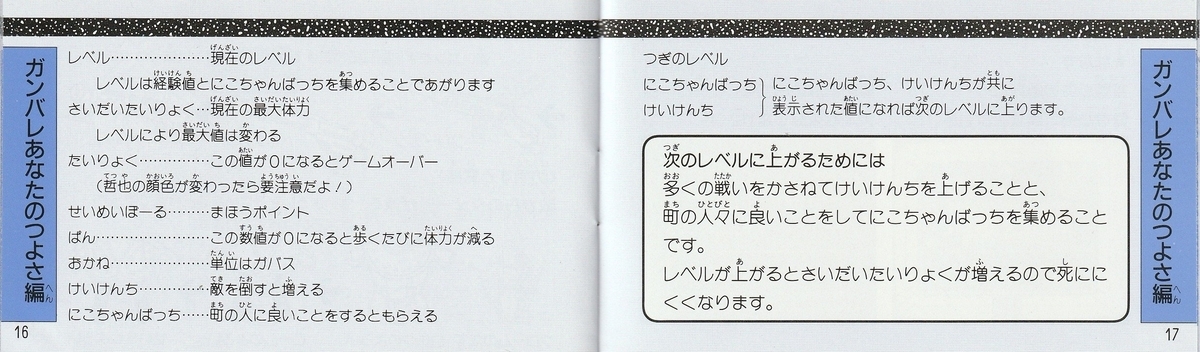 ガンバレあなたのつよさ編
レベル…………………現在のレベル
レベルは経験値とにこちゃんばっちを集めることであがります
さいだいたいりょく…現在の最大体力
レベルにより最大値は変わる
たいりょく……………この値が0になるとゲームオーバー
(哲也の顔色が変わったら要注意だよ!)
せいめいぼーる………まほうポイント
ぱん……………………この数値が0になると歩くたびに体力が減る
おかね…………………単位はガバス
けいけんち……………敵を倒すと増える
にこちゃんばっち……町の人に良いことをするともらえる
16
つぎのレベル
にこちゃんばっち
けいけんち
にこちゃんばっち、けいけんちが共に
表示された値になれば次のレベルに上ります。
次のレベルに上がるためには
多くの戦いをかさねてけいけんちを上げることと、
町の人々に良いことをしてにこちゃんばっちを集めること
です。
レベルが上がるとさいだいたいりょくが増えるので死にに
くくなります。
ガンバレあなたのつよさ編
17